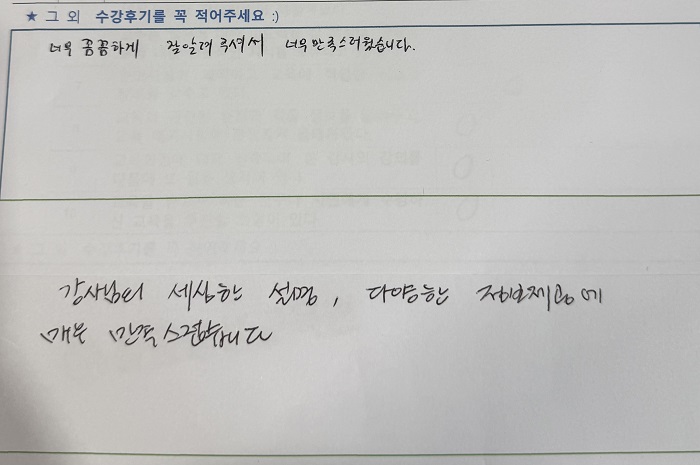 ★ 그 외 수강후기를 꼭 적어주세요 :)
너무 꼼꼼하게 잘 알려 주셔서 너무 만족스러웠습니다.
강사님의 세심한 설명, 다양한 정보제공에
매우 만족스럽습니다